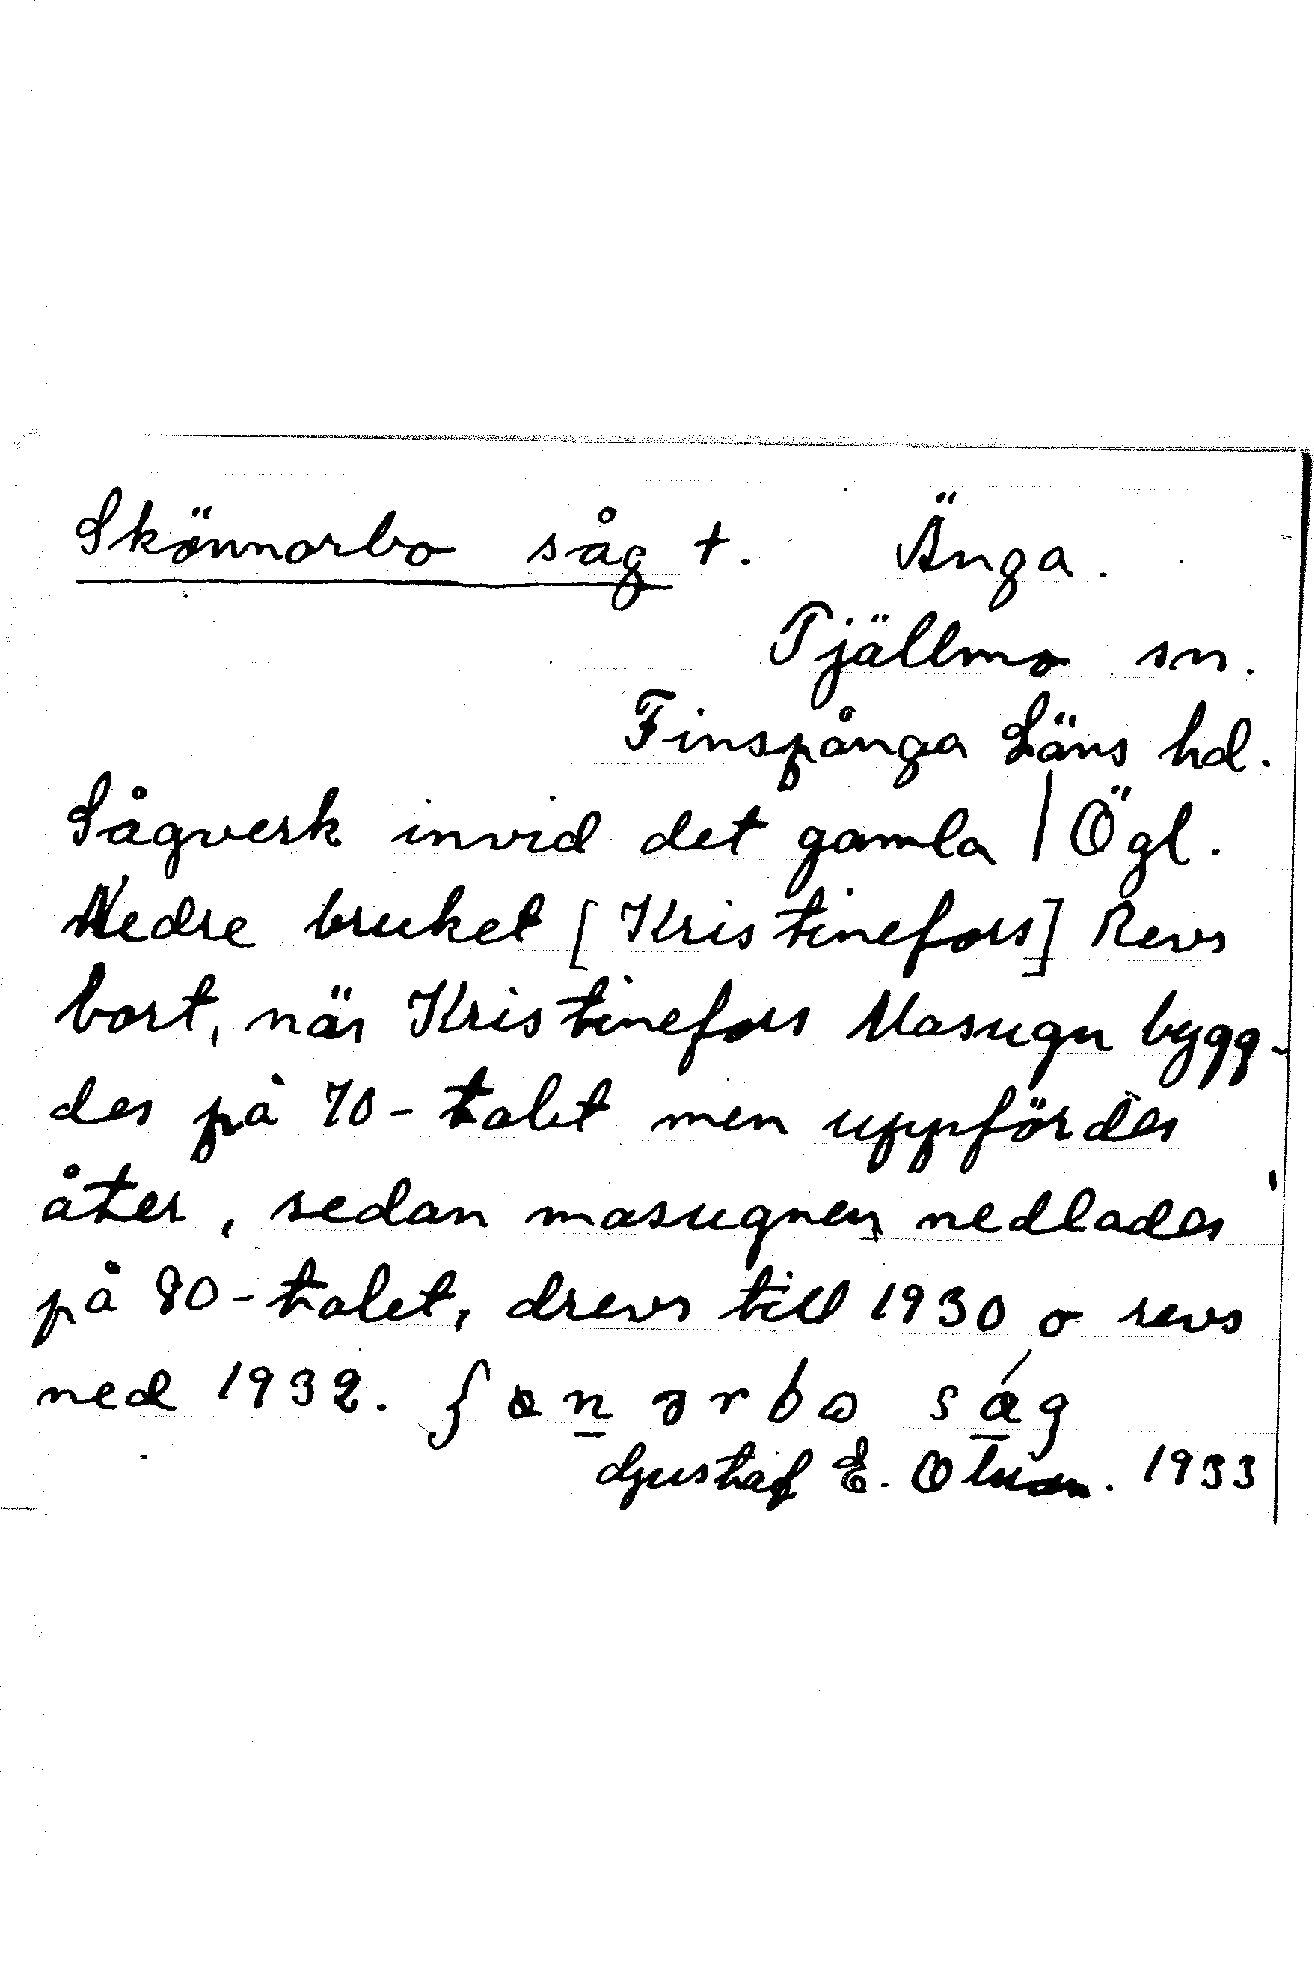 Skönnarbo såg †. Änga.
Tjällmo sn.
Finspånga Läns hd.
Sågverk invid det gamla | Ögl.
Nedre bruket [Kristinefors] Revs
bort, när Kristinefors Masugn bygg-
des på 70-talet men uppfördes
åter, sedan masugnen nedlades
på 80-talet, drevs till 1930 o revs
ned 1932. såg
Gustaf E. 1933